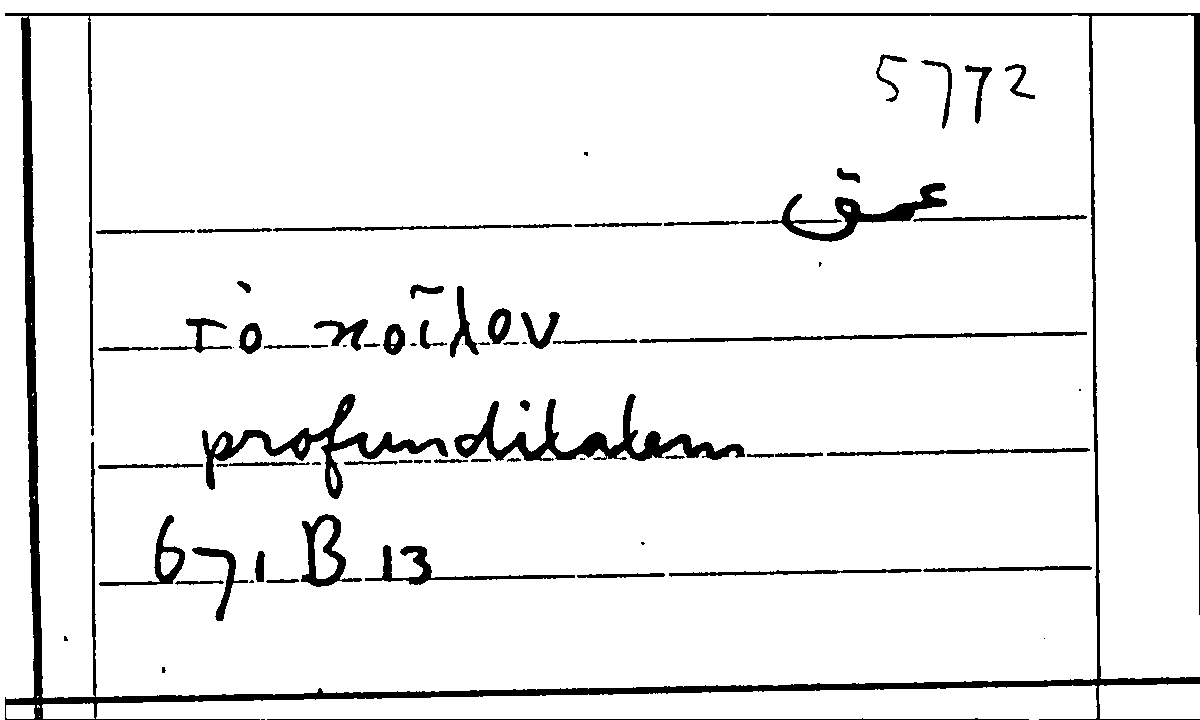 5772
عمق
τὸ κοῖλον
profunditatem
671 B 13